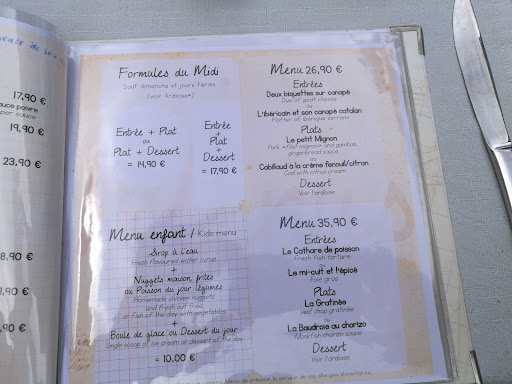 17,90 €
19,90 €
23,90 €
Formules du Midi
Sauf dimanche et jours fériés
(voir Ardoise*)
Entrée + Plat
ou
Plat + Dessert
= 14,90 €
Entrée
+
Plat
+
Dessert
= 17,90 €
Menu enfant / Kids menu
Sirop à l'eau
Fresh flavoured water syrup
+
Nuggets maison, frites
ou Poisson du jour légumes
Homemade chicken nuggets
and fresh out fries
or Fish of the day with vegetables
+
Boule de glace ou Dessert du jour
Single scoop of ice cream or dessert of the day
= 10,00 €
Menu 26,90 €
Entrées
Deux biquettes sur canapé
Duo of goat cheese
ou
L'ibéricain et son canapé catalan
Platter of iberique serrano
Plats
Le petit Mignon
Pork «filet mignon» and gambas,
gingerbread sauce
ou
Cabillaud à la crème fenouil/citron
Cod with citrus cream
Dessert
Voir l'ardoise
Menu 35,90 €
Entrées
Le Cathare de poisson
Fresh fish tartare
ou
Le mi-cuit et l'épicé
Foie gras
Plats
La Gratinée
Veal chop gratinée
ou
La Baudroie au chorizo
Monkfish chorizo sauce
Dessert
Voir l'ardoise